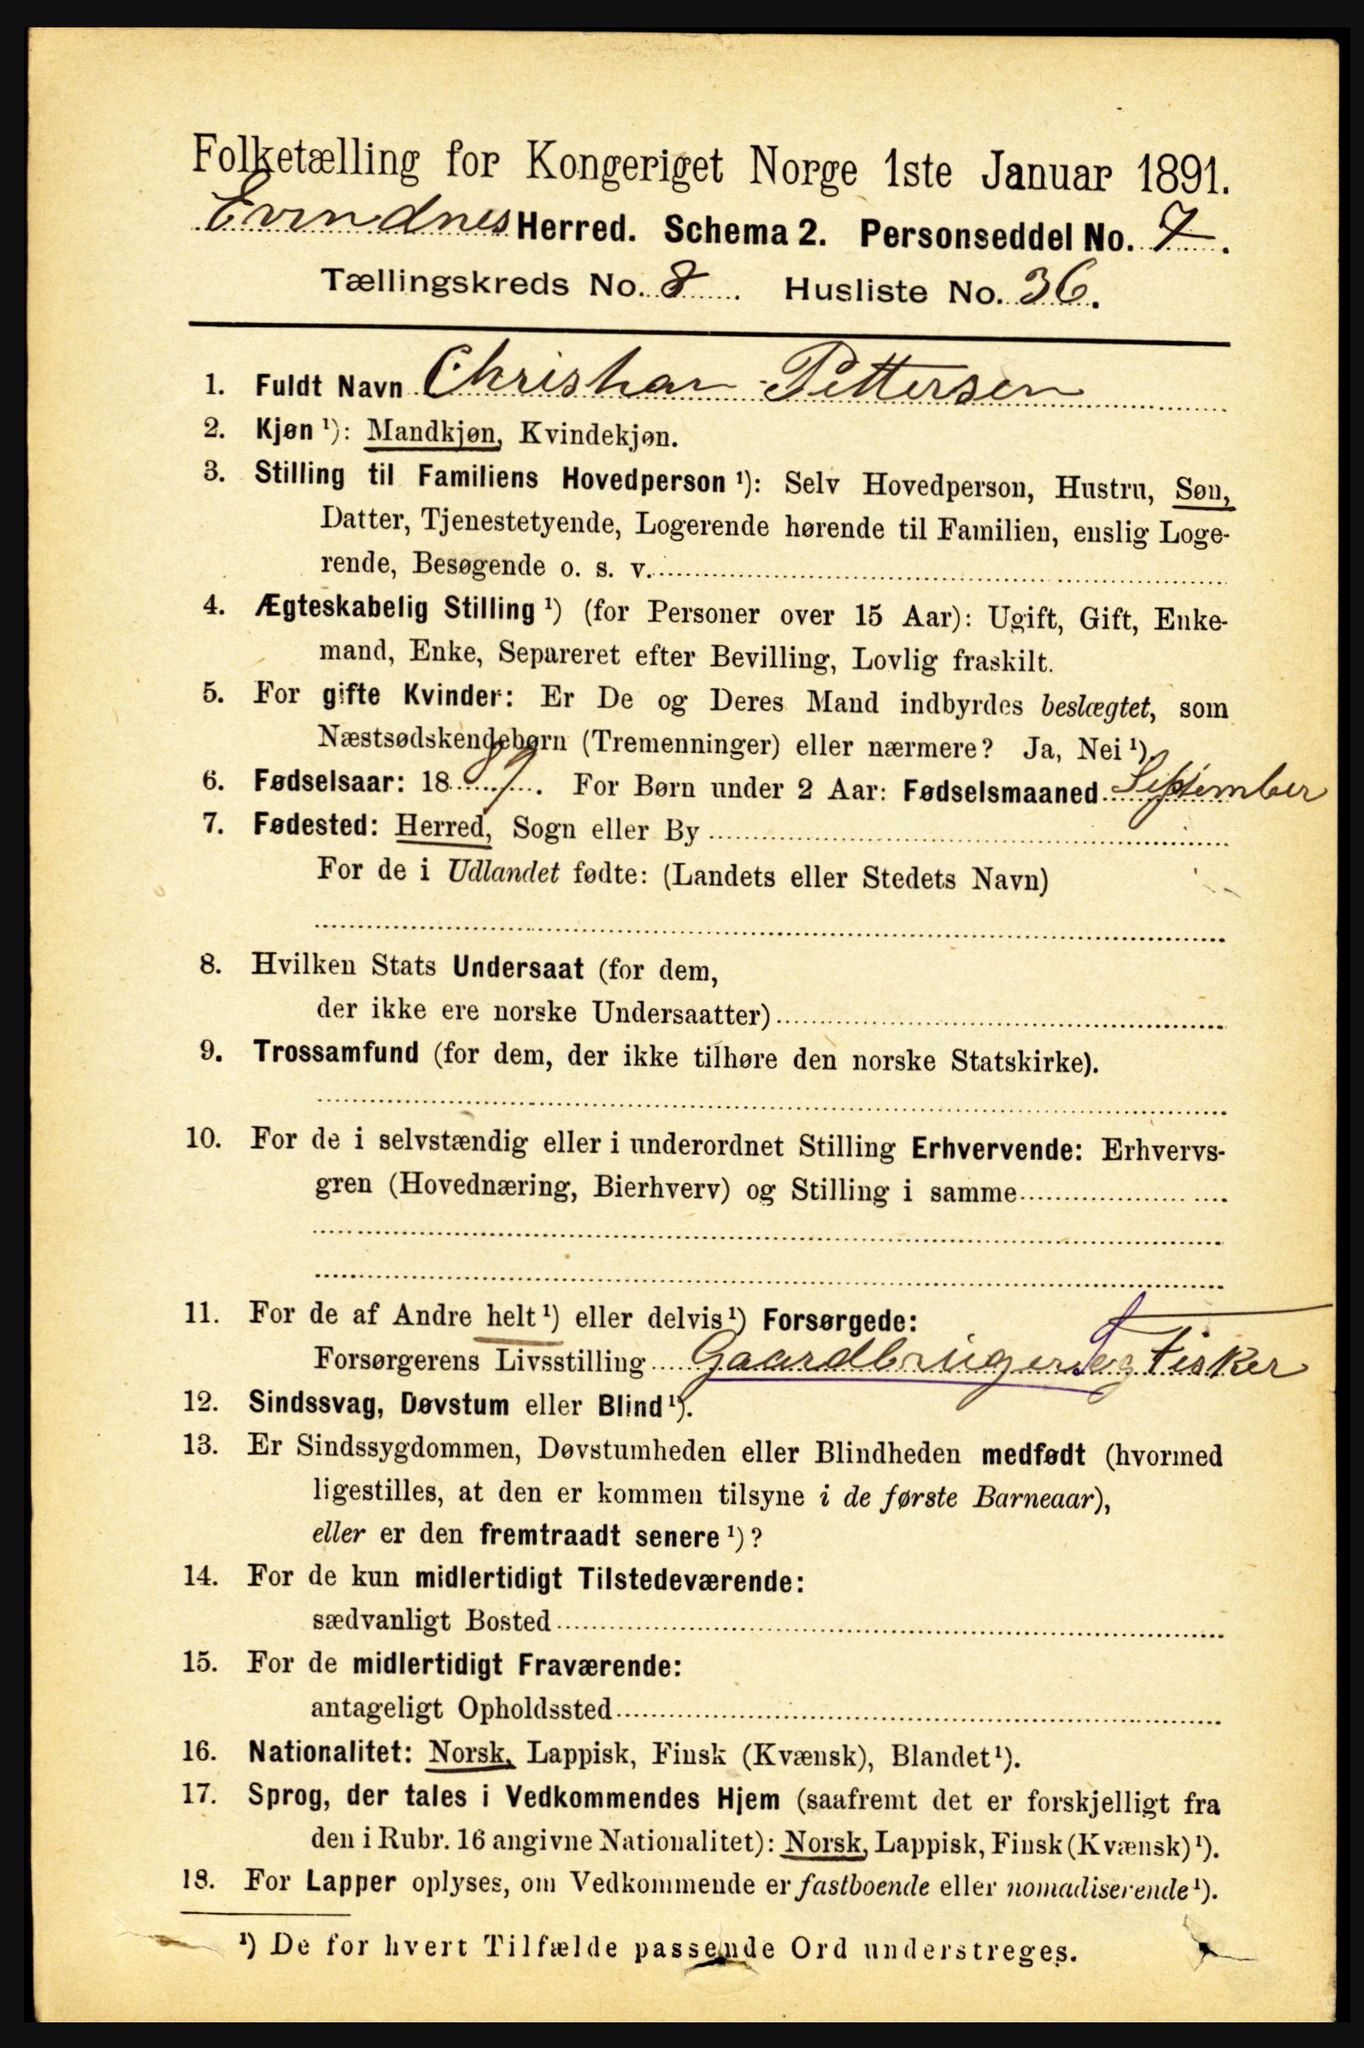 Folketælling for Kongeriget Norge 1ste Januar 1891.
Evindnes Herred. Schema 2. Personseddel No. 7.
Tællingskreds No. 8. Husliste No. 36.
1. Fuldt Navn Christian Pettersen
2. Kjøn ¹): Mandkjøn, Kvindekjøn.
3. Stilling til Familiens Hovedperson ¹): Selv Hovedperson, Hustru, Søn,
Datter, Tjenestetyende, Logerende hørende til Familien, enslig Loge-
rende, Besøgende o. s. v.
4. Ægteskabelig Stilling ¹) (for Personer over 15 Aar): Ugift, Gift, Enke-
mand, Enke, Separeret efter Bevilling, Lovlig fraskilt.
5. For gifte Kvinder: Er De og Deres Mand indbyrdes beslægtet, som
Næstsødskendebørn (Tremenninger) eller nærmere? Ja, Nei ¹)
6. Fødselsaar: 18 . For Børn under 2 Aar: Fødselsmaaned September
7. Fødested: Herred, Sogn eller By
For de i Udlandet fødte: (Landets eller Stedets Navn)
8. Hvilken Stats Undersaat (for dem,
der ikke ere norske Undersaatter)
9. Trossamfund (for dem, der ikke tilhøre den norske Statskirke).
10. For de i selvstændig eller i underordnet Stilling Erhvervende: Erhvervs-
gren (Hovednæring, Bierhverv) og Stilling i samme
11. For de af Andre helt ¹) eller delvis ¹) Forsørgede:
Forsørgerens Livsstilling Gaardbruger og Fisker
12. Sindssvag, Døvstum eller Blind ¹).
13. Er Sindssygdommen, Døvstumheden eller Blindheden medfødt (hvormed
ligestilles, at den er kommen tilsyne i de første Barneaar),
eller er den fremtraadt senere ¹)?
14. For de kun midlertidigt Tilstedeværende:
sædvanligt Bosted
15. For de midlertidigt Fraværende:
antageligt Opholdssted
16. Nationalitet: Norsk, Lappisk, Finsk (Kvænsk), Blandet ¹).
17. Sprog, der tales i Vedkommendes Hjem (saafremt det er forskjelligt fra
den i Rubr. 16 angivne Nationalitet): Norsk, Lappisk, Finsk (Kvænsk) ¹).
18. For Lapper oplyses, om Vedkommende er fastboende eller nomadiserende ¹).
¹) De for hvert Tilfælde passende Ord understreges.